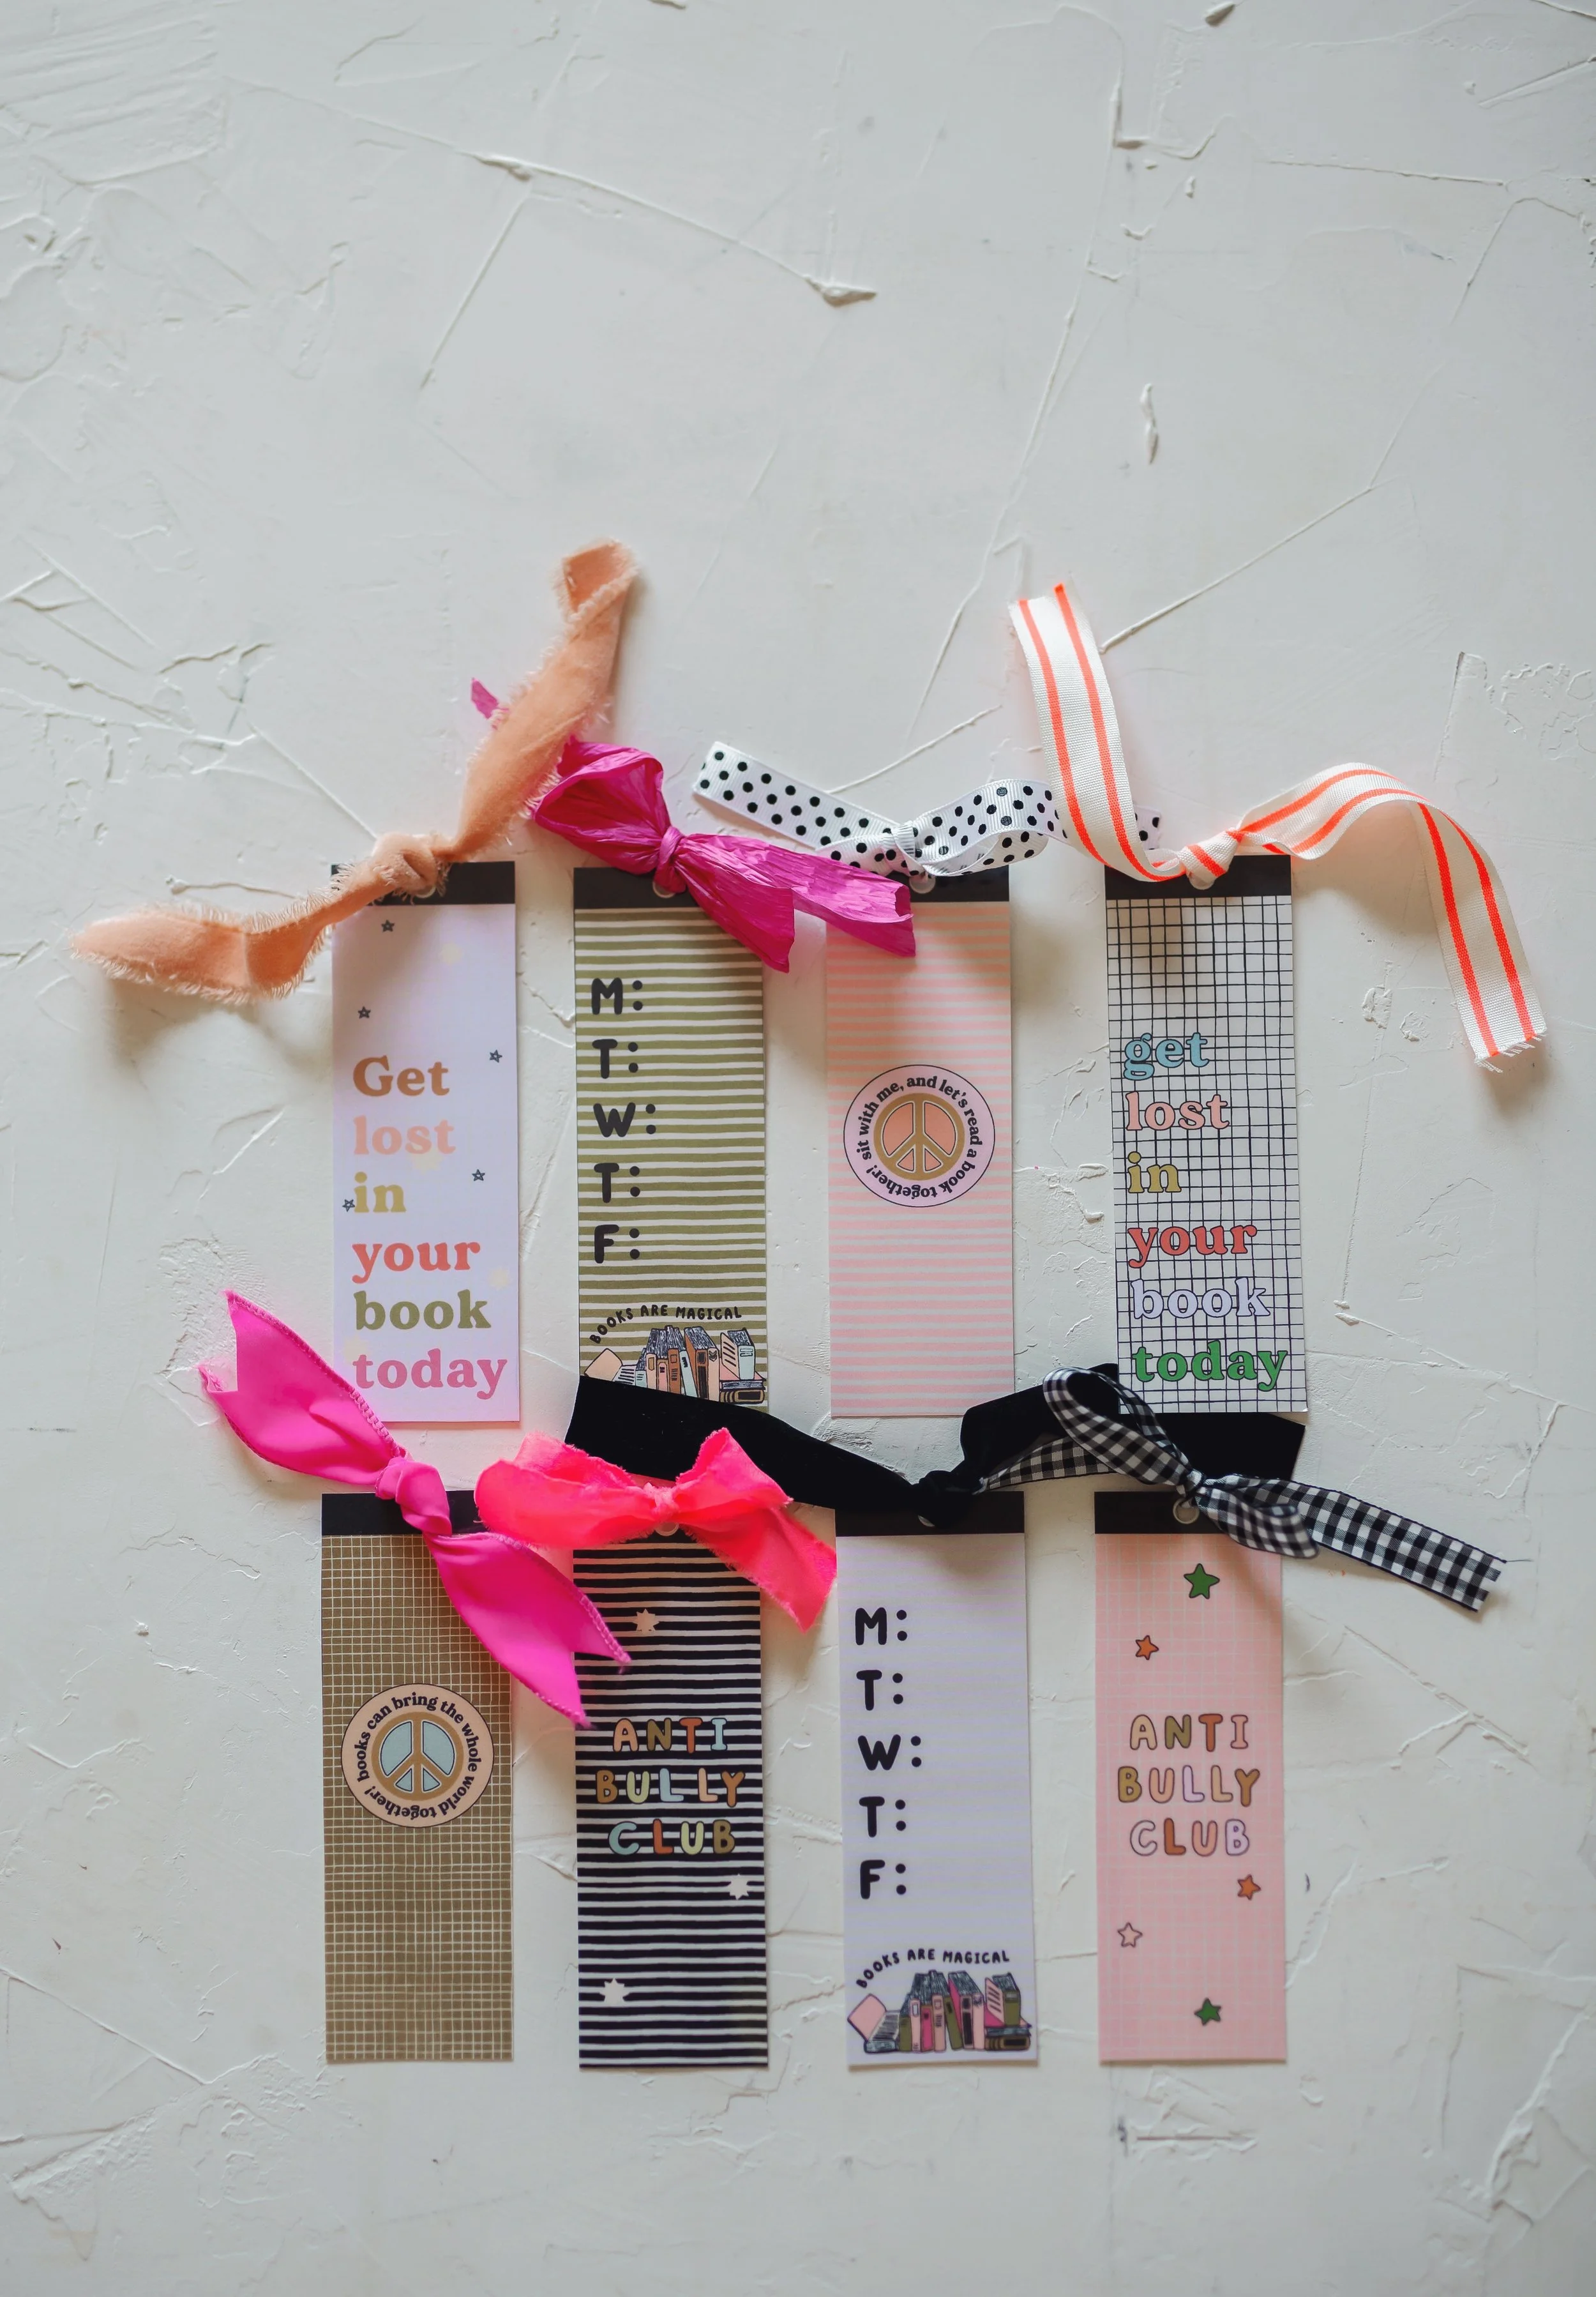 Get
lost
in
your
book
today
M:
T:
W:
T:
F:
BOOKS ARE MAGICAL
sit with me, and let's read a book together!
get
lost
in
your
book
today
books can bring the whole world together!
ANTI
BULLY
CLUB
M:
T:
W:
T:
F:
BOOKS ARE MAGICAL
ANTI
BULLY
CLUB